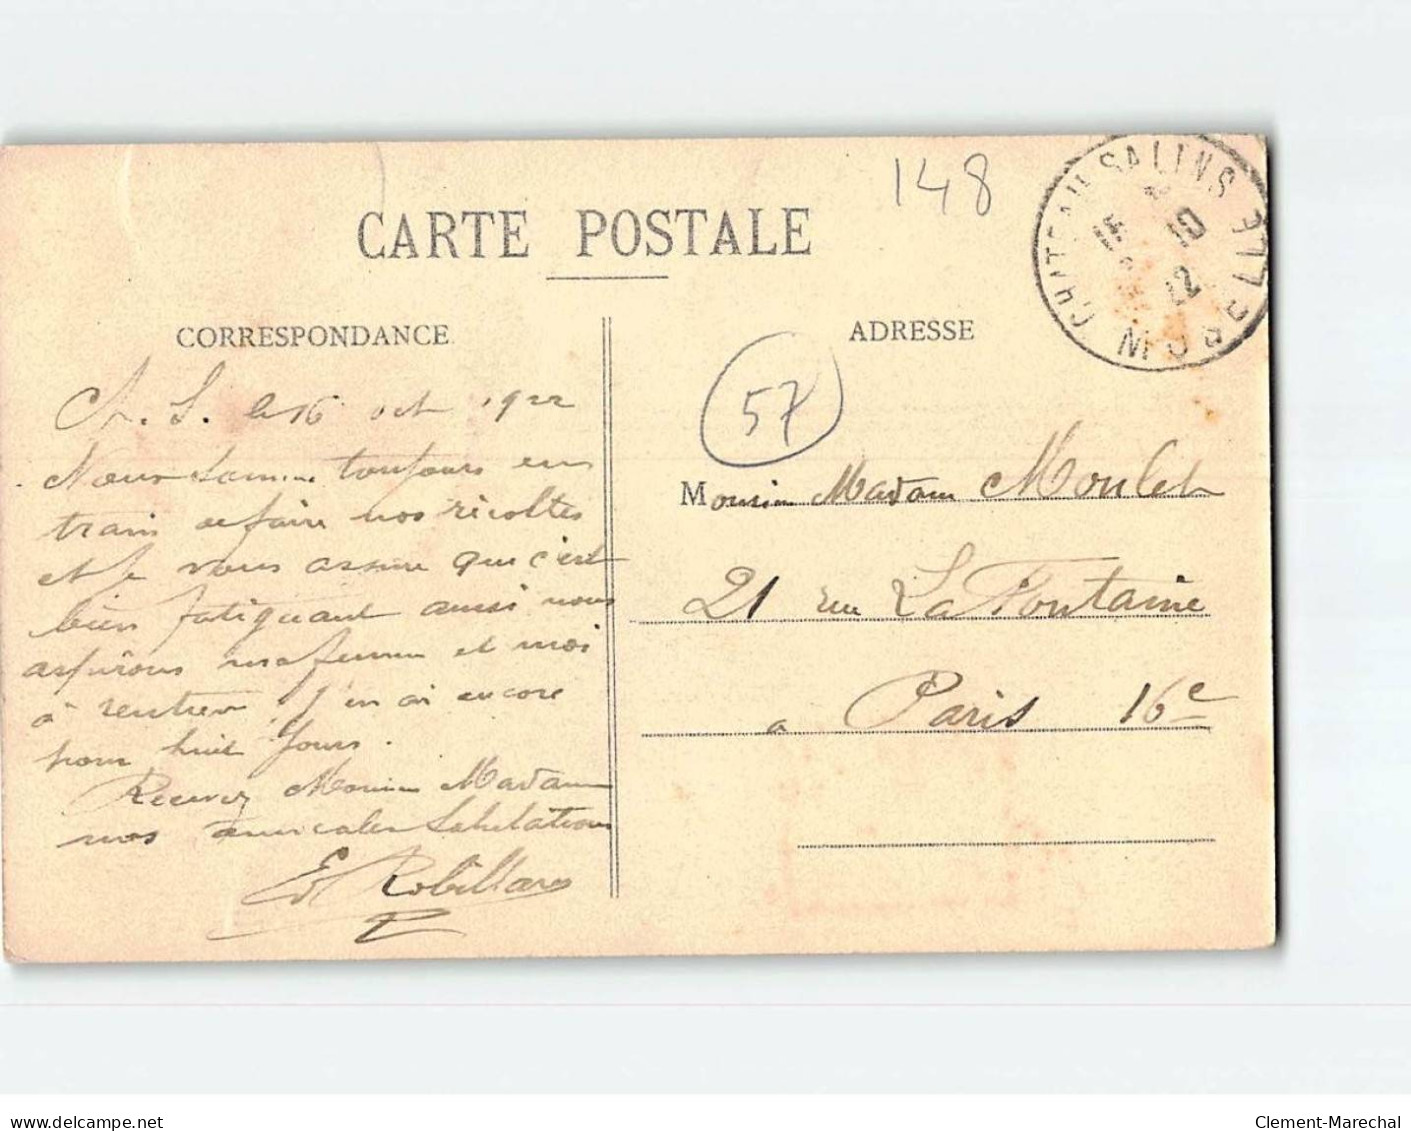 148
CHATEAU SALINS
16
10
22
MOSELLE
CARTE POSTALE
CORRESPONDANCE
ADRESSE
57
Ch. S. le 16 oct 1922
Nous sommes toujours en
train de faire nos récoltes
et je vous assure que c'est
bien fatiguant aussi nous
aspirons ma femme et moi
à rentrer. J'en ai encore
pour huit jours.
Recevez Monsieur Madame
nos amicales Salutations
Ed Robillard
Monsieur Madame Moulet
21 rue La Fontaine
a Paris 16e
www.delcampe.net
Clement-Marechal